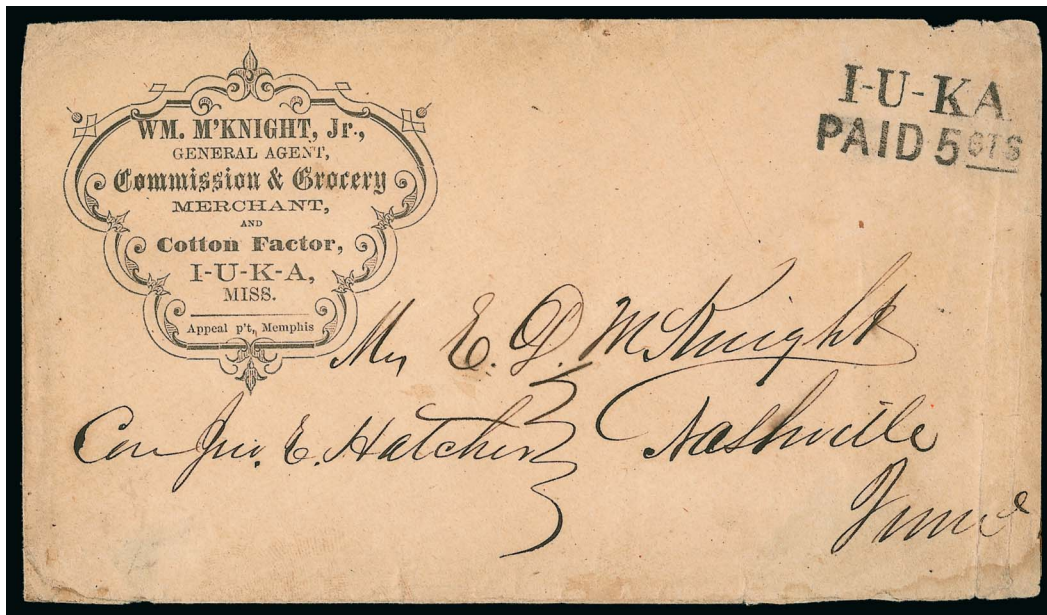 WM. M'KNIGHT, Jr.,
GENERAL AGENT,
Commission & Grocery
MERCHANT,
AND
Cotton Factor,
I-U-K-A,
MISS.
Appeal p't, Memphis
I-U-KA
PAID 5 CTS
E. D. McKnight
Jno. E. Hatcher
Nashville
Tenne